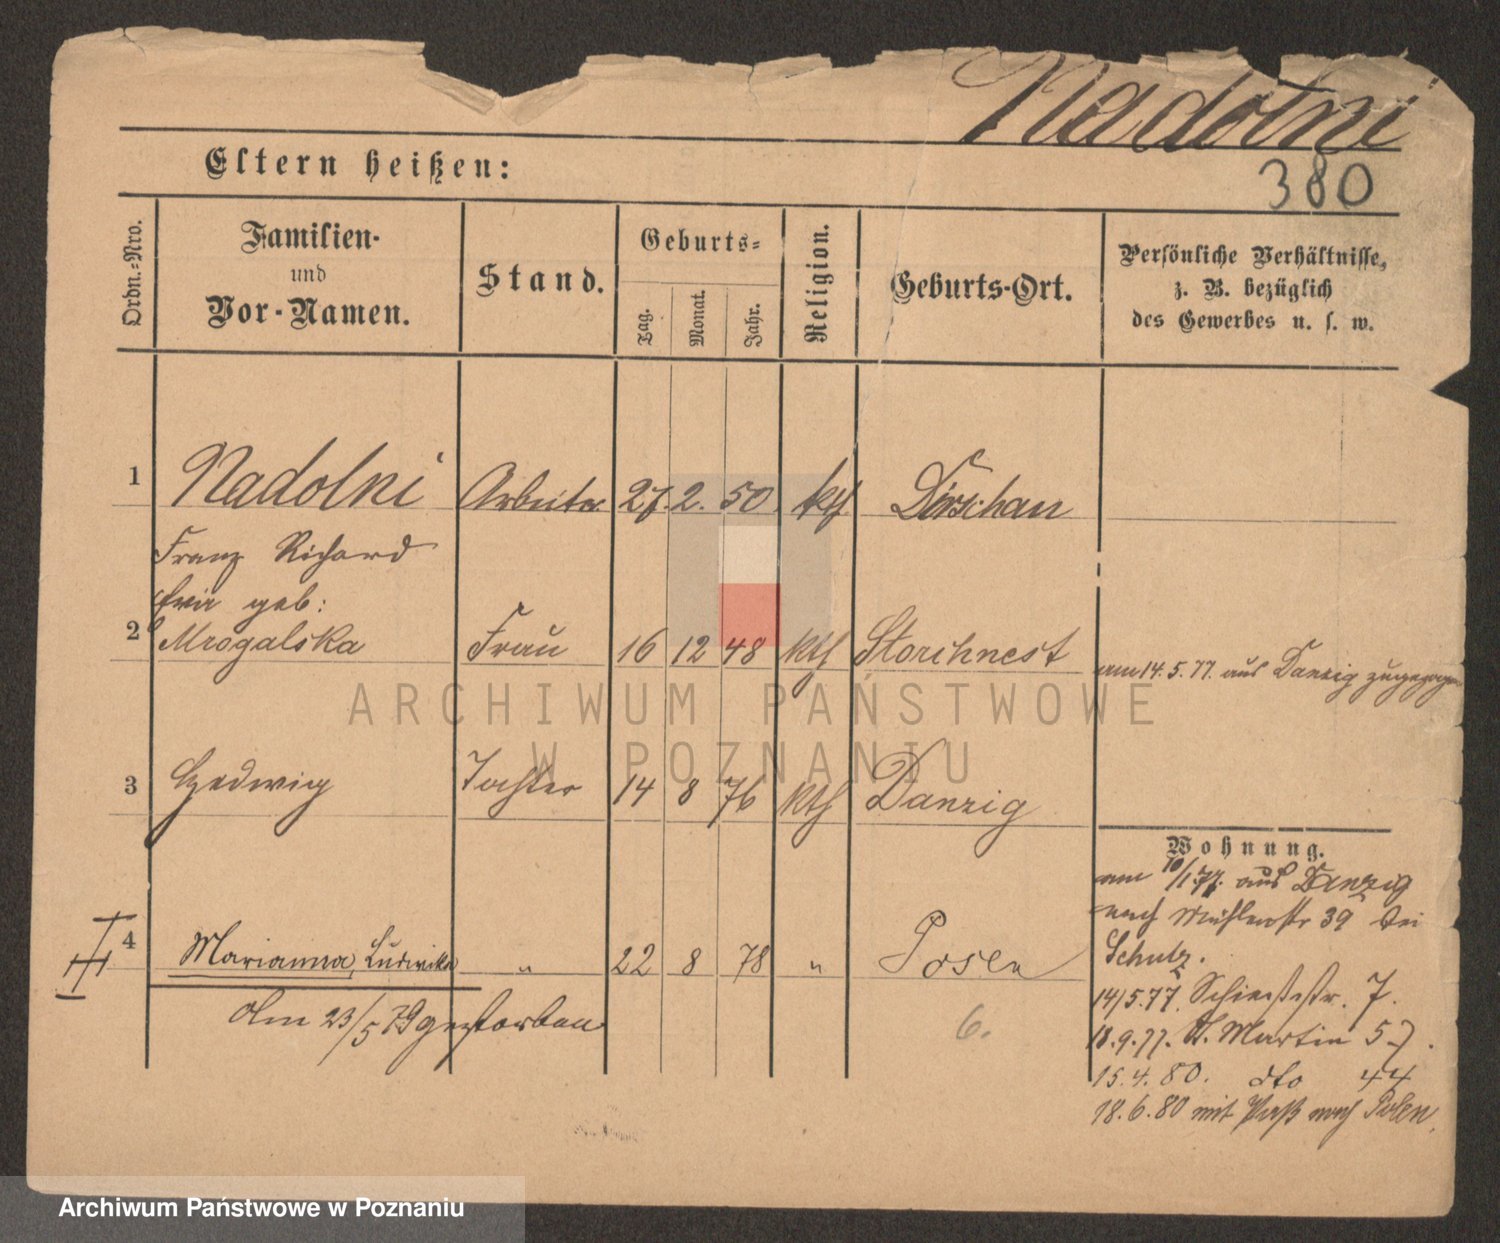 Nadolni
380
Eltern heißen:
Ordn.-Nro.
Familien- und Vor-Namen.
Stand.
Geburts-
Tag.
Monat.
Jahr.
Religion.
Geburts-Ort.
Persönliche Verhältnisse,
z. B. bezüglich
des Gewerbes u. s. w.
1 Nadolni Arbeiter 27. 2. 50. kth Dirschau
Franz Richard
geb:
2 Mrogalska Frau 16 12 48 kth Storchnest am 14.5.77. aus Danzig zugezogen
ARCHIWUM PAŃSTWOWE
W POZNANIU
3 Hedwig Tochter 14 8 76 kth Danzig
Wohnung.
am 10/1 77. aus Danzig
nach Mühlenstr 39 bei
Schulz.
4 Marianna, Ludwika " 22 8 78 " Posen
14/5.77. Schießstr. 7.
Am 23/5 79 gestorben
6.
18.9.77. St. Martin 57.
15.4.80. dto 44
18.6.80 mit Paß nach Polen.
Archiwum Państwowe w Poznaniu